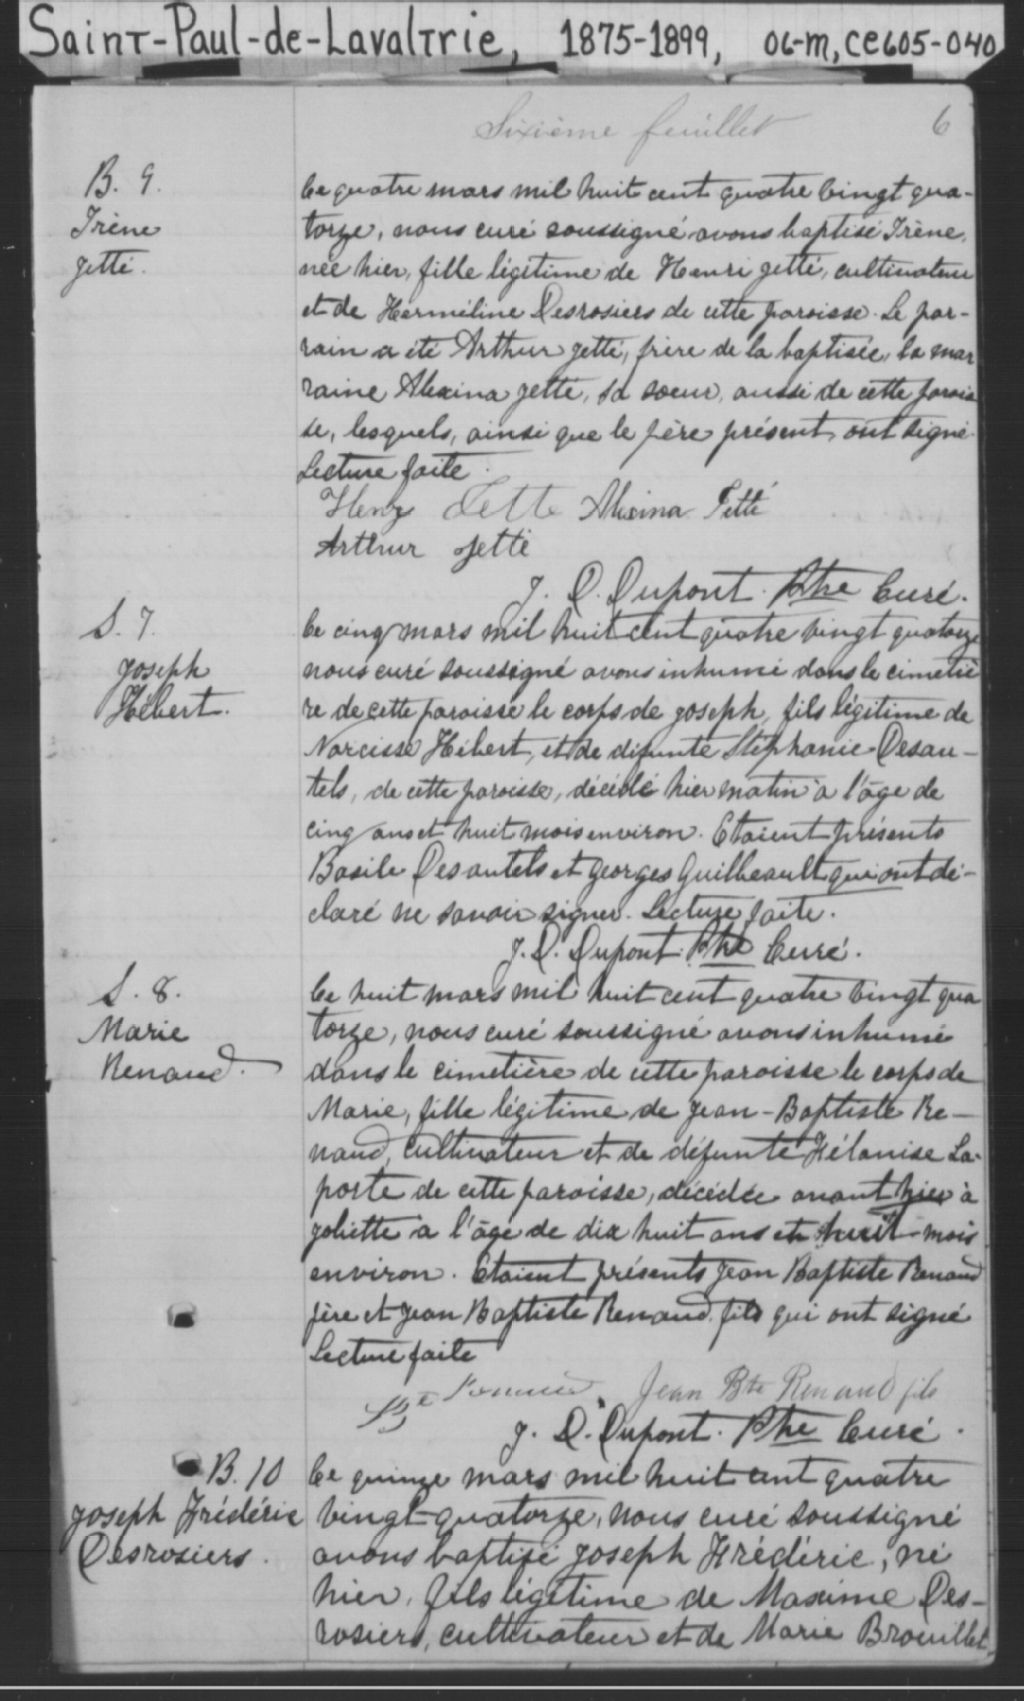 Saint-Paul-de-Lavaltrie, 1875-1899, 06-M, CE605-040
Sixième feuillet 6
B. 9.
Irène
Jetté.
Ce quatre mars mil huit cent quatre vingt qua-
torze, nous curé soussigné avons baptisé Irène,
née hier, fille légitime de Henri Jetté, cultivateur
et de Herméline Desrosiers de cette paroisse. Le par-
rain a été Arthur Jetté, frère de la baptisée, la mar
raine Alexina Jetté, sa soeur, aussi de cette parois
se, lesquels, ainsi que le père présent, ont signé.
Lecture faite.
Henry Jette Alexina Jetté
Arthur Jetté
J. D. Dupont. Ptre Curé.
S. 7.
Joseph
Hébert.
Ce cinq mars mil huit cent quatre vingt quatorze
nous curé soussigné avons inhumé dans le cimetiè
re de cette paroisse le corps de Joseph, fils légitime de
Narcisse Hébert, et de défunte Stéphanie Desau-
tels, de cette paroisse, décédé hier matin à l'âge de
cinq ans et huit mois environ. Etaient présents
Basile Desautels et Georges Guilbeault qui ont dé-
claré ne savoir signer. Lecture faite.
J. D. Dupont. Ptre Curé.
S. 8.
Marie
Renaud.
Ce huit mars mil huit cent quatre vingt qua
torze, nous curé soussigné avons inhumé
dans le cimetière de cette paroisse le corps de
Marie, fille légitime de Jean-Baptiste Re-
naud, cultivateur et de défunte Hélanise La-
porte de cette paroisse, décédée avant hier à
Joliette à l'âge de dix huit ans et huit mois
environ. Etaient présents Jean Baptiste Renaud
père et Jean Baptiste Renaud fils qui ont signé
Lecture faite
Jean Bte Renaud fils
J. D. Dupont. Ptre Curé.
B. 10
Joseph Frédéric
Desrosiers.
Ce quinze mars mil huit cent quatre
vingt quatorze, nous curé soussigné
avons baptisé Joseph Frédéric, né
hier, fils légitime de Maxime Des-
rosiers, cultivateur et de Marie Brouillet